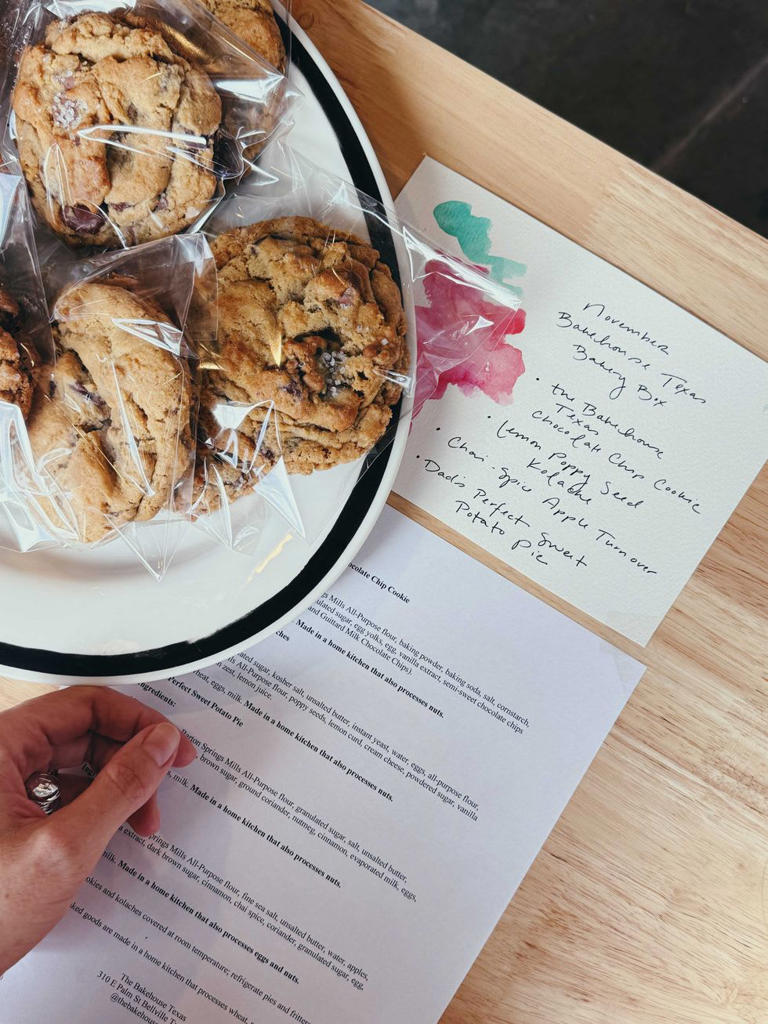 November
Bakehouse Texas
Bakery Box
• the Bakehouse
Texas
Chocolate Chip Cookie
• Lemon Poppy Seed
Kolache
• Chai-Spice Apple Turnover
• Dad's Perfect Sweet
Potato pie
Chip Cookie
Mills All-Purpose flour, baking powder, baking soda, salt, cornstarch,
sugar, egg yolks, egg, vanilla extract, semi-sweet chocolate chips
and Guittard Milk Chocolate Chips).
Made in a home kitchen that also processes nuts.
sugar, kosher salt, unsalted butter, instant yeast, water, eggs, all-purpose flour,
Mills All-Purpose flour, poppy seeds, lemon curd, cream cheese, powdered sugar, vanilla
zest, lemon juice.
eggs, milk. Made in a home kitchen that also processes nuts.
Perfect Sweet Potato Pie
Ingredients:
Springs Mills All-Purpose flour, granulated sugar, salt, unsalted butter,
brown sugar, ground coriander, nutmeg, cinnamon, evaporated milk, eggs,
milk. Made in a home kitchen that also processes nuts.
Springs Mills All-Purpose flour, fine sea salt, unsalted butter, water, apples,
extract, dark brown sugar, cinnamon, chai spice, coriander, granulated sugar, egg,
milk. Made in a home kitchen that also processes eggs and nuts.
and kolaches covered at room temperature; refrigerate pies and
goods are made in a home kitchen that processes wheat,
The Bakehouse Texas
310 E Palm St Bellville